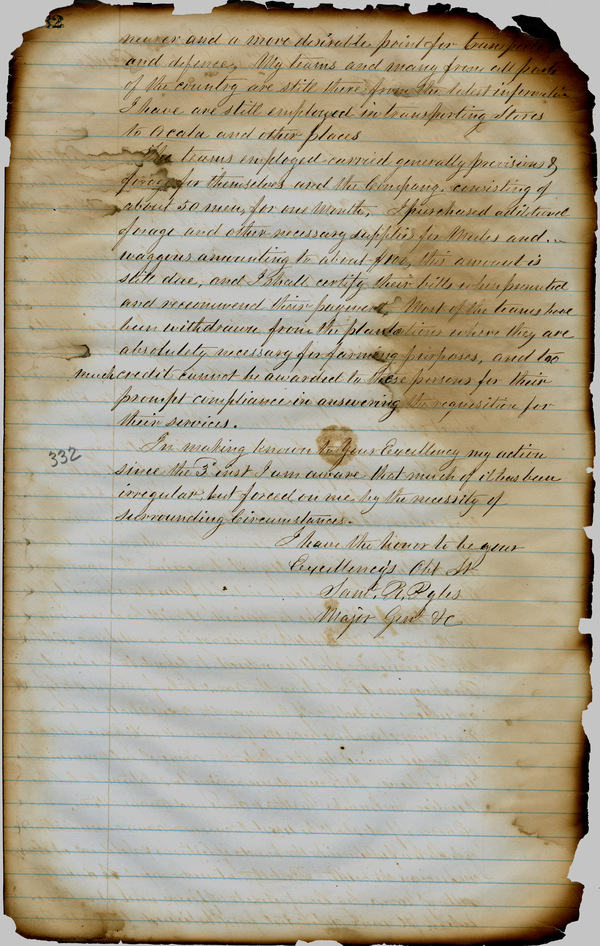 32
nearer and a more desirable point for
and defence, My teams and many from all parts
of the country are still there, from the latest information
I have are still employed in transporting Stores
to Ocala and other places
The teams employed carried generally provisions &
forage for themselves and the Company, consisting of
about 50 men, for one Month, I purchased additional
forage and other necessary supplies for Mules and
waggons amounting to about this amount is
still due, and I shall certify their bills when presented
and recommend their payment, Most of the teams have
been withdrawn from the plantations where they are
absolutely necessary for farming purposes, and too
much credit cannot be awarded to these persons for their
prompt compliance in answering the requisition for
their services.
332
In making known to Your Excellency my action
since the 3d inst I am aware that much of it has been
irregular but forced on me by the necessity of
surrounding Circumstances.
I have the honor to be your
Excellency's Obt St
Saml. R. Pyles
Major Genl &c